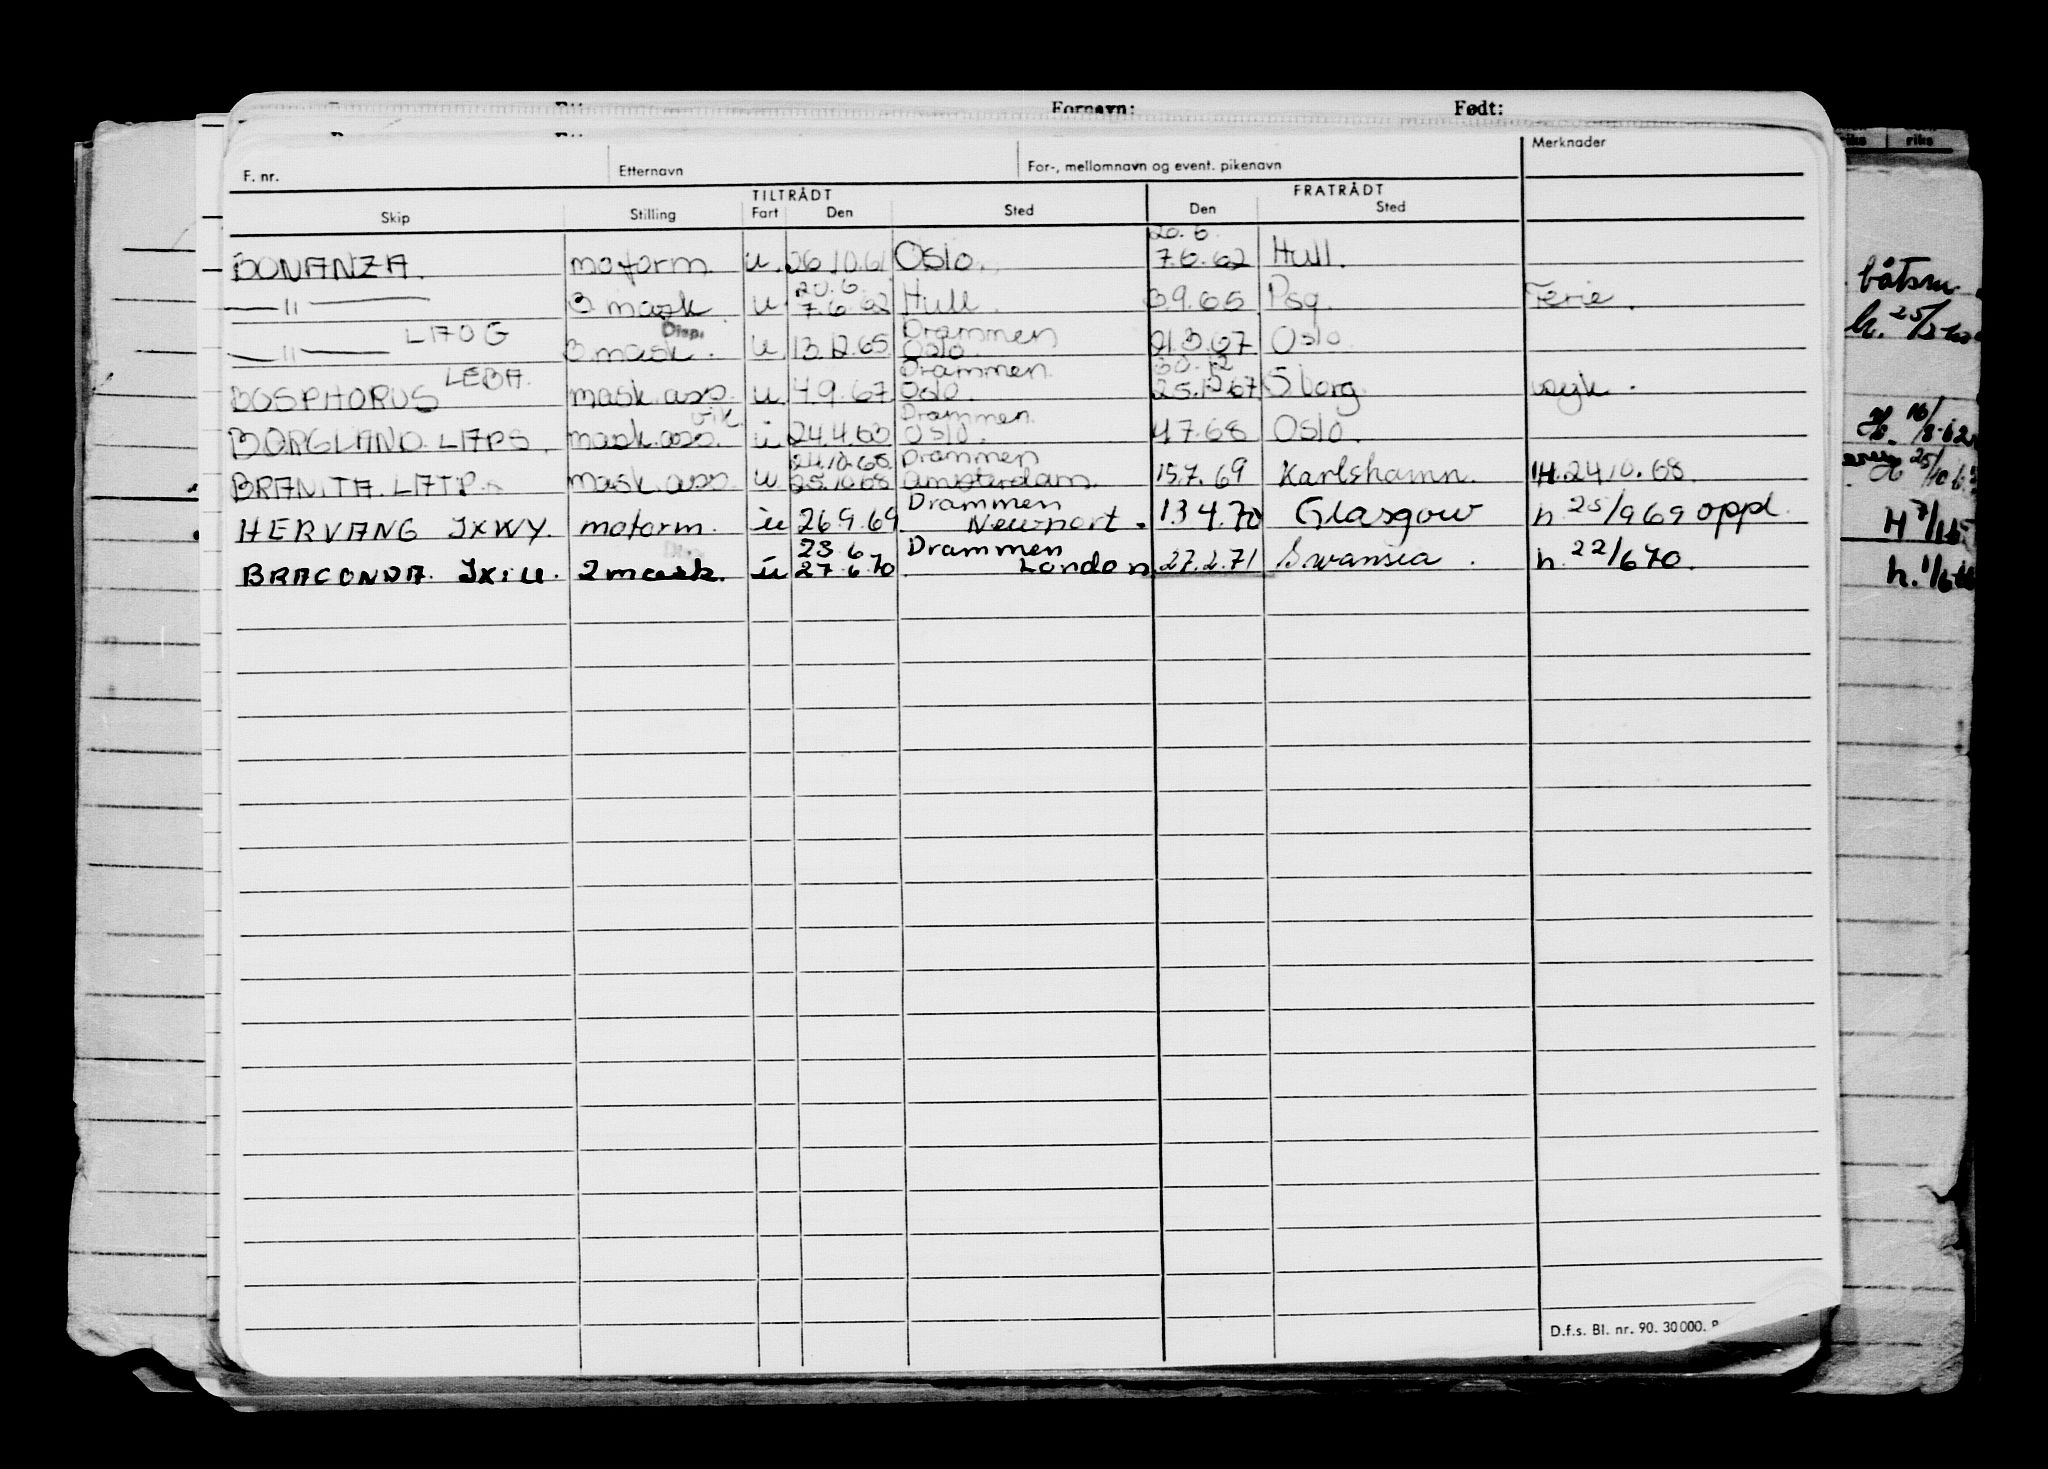 Fornavn: Født:
Merknader
F. nr. Etternavn For-, mellomnavn og event. pikenavn
TILTRÅDT FRATRÅDT
Skip Stilling Fart Den Sted Den Sted
20.6.
BONANZA. motorm. u. 26.10.61 Oslo. 7.6.62 Hull.
20.6.
—„— 3 mask. u 7.6.62 Hull. 3.9.65 Psg. Ferie.
LAOG Disp. Drammen
—„— 3 mask. u 13.12.65 Oslo. 21.3.67 Oslo.
LEBA. Drammen. 30.12
BOSPHORUS mask.ass. u. 4.9.67 Oslo. 25.12.67 S borg syk.
vik. Drammen.
BORGLAND. LAPS. mask.ass. u 24.4.68 Oslo. 4.7.68 Oslo.
24.10.68. Drammen
BRANITA. LATP. mask.ass. u 25.10.68 Amsterdam. 15.7.69 Karlshamn. H. 24.10.68.
Drammen
HERVANG JXWY. motorm. u 26.9.69 Newport. 13.4.70 Glasgow h. 25/9 69 oppl.
23.6 Drammen
BRACONDA. JXIU. 2 mask. u 27.6.70 London 27.2.71 Swansea. h. 22/6 70.
båtsm.
D.f.s. Bl. nr. 90. 30 000.